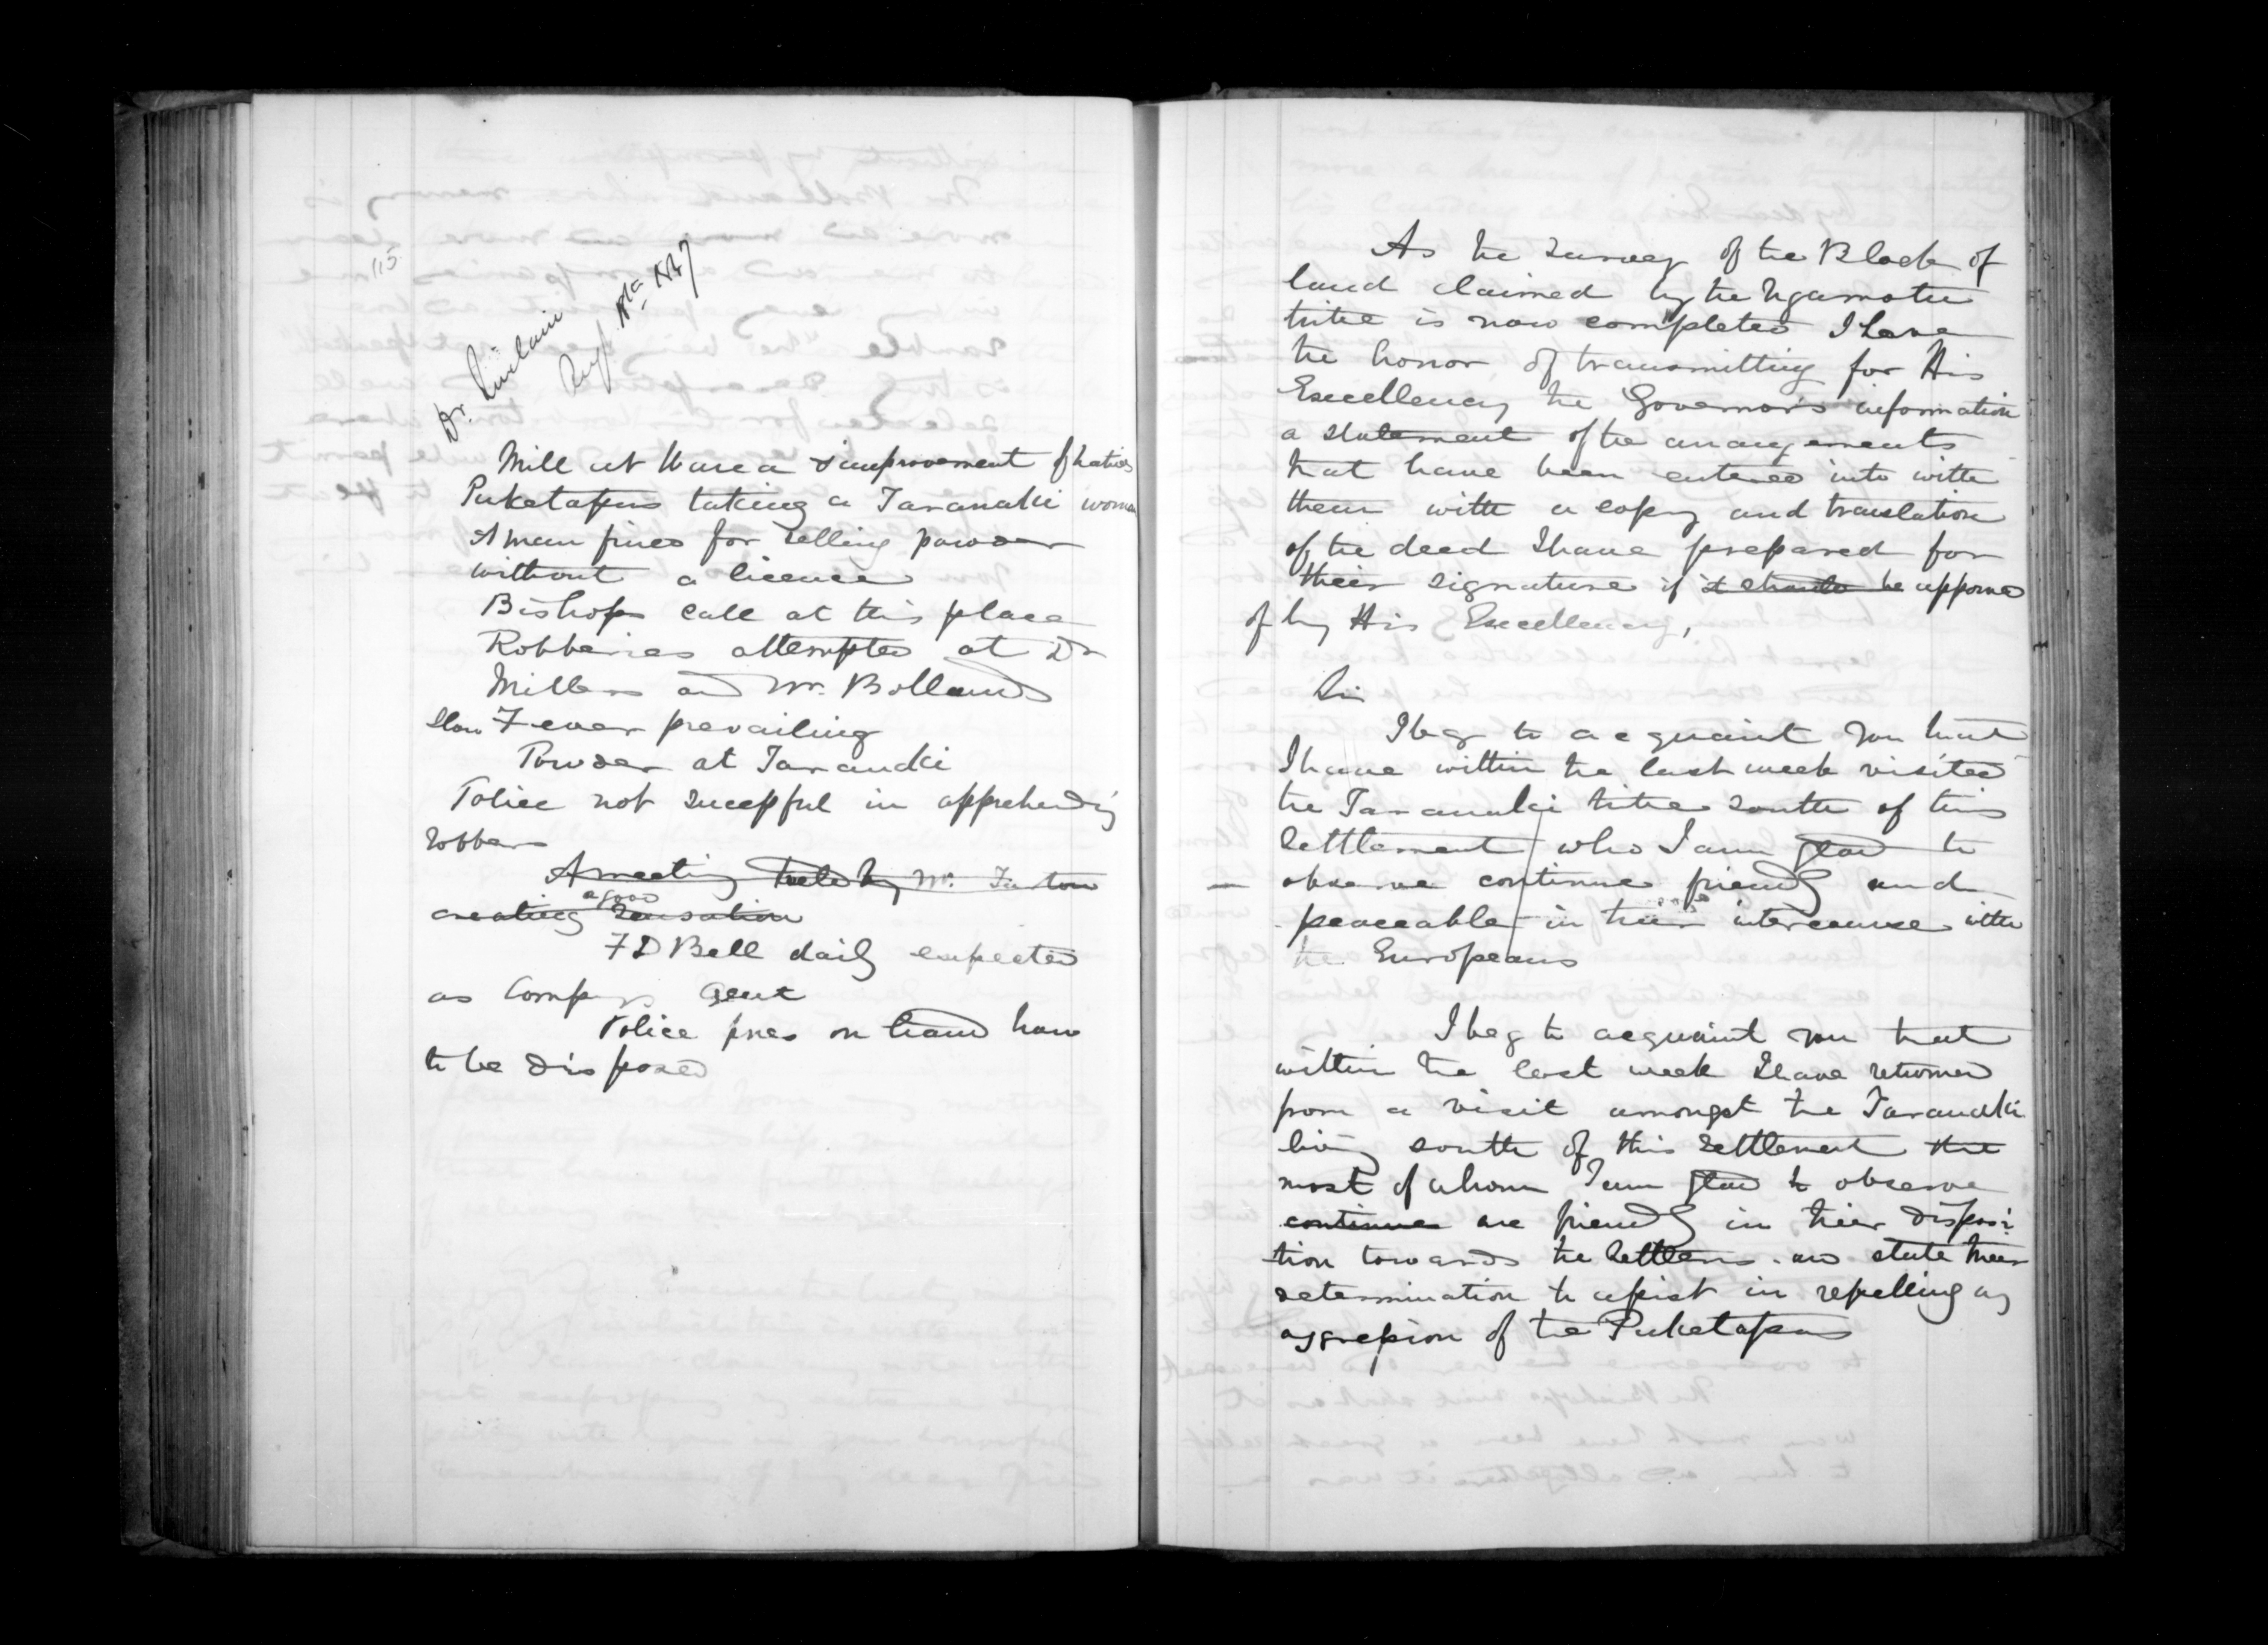 115
Dr. Sinclair
Augt 18th 1847
Mill at Warea & improvement of natives
Puketapus taking a Taranaki woman
A man fined for selling powder
without a licence
Bishops call at this place
Robberies attempted at Dr
Millers and Mr. Bollands
Slow Fever prevailing
Powder at Taranaki
Police not successful in apprehending
robbers
A meeting held by Mr. Turton
creating a good sensation
F D Bell daily expected
as Compys Agent
Police fines on hand how
to be disposed
As the survey of the Block of
land claimed by the Ngamotu
tribe is now completed I have
the honor of transmitting for His
Excellency the Governor's information
a statement of the arrangements
that have been entered into with
them with a copy and translation
of the deed I have prepared for
their signature if it should be approved
of by His Excellency,
Sir
I beg to acquaint you that
I have within the last week visited
the Taranaki tribe south of this
settlement who I am glad to
observe continue friendly and
peaceable in their intercourse with
the Europeans
I beg to acquaint you that
within the last week I have returned
from a visit amongst the Taranaki
living south of this settlement the
most of whom I am glad to observe
continue are friendly in their disposi
tion towards the settlers. and state their
determination to assist in repelling any
aggression of the Puketapus